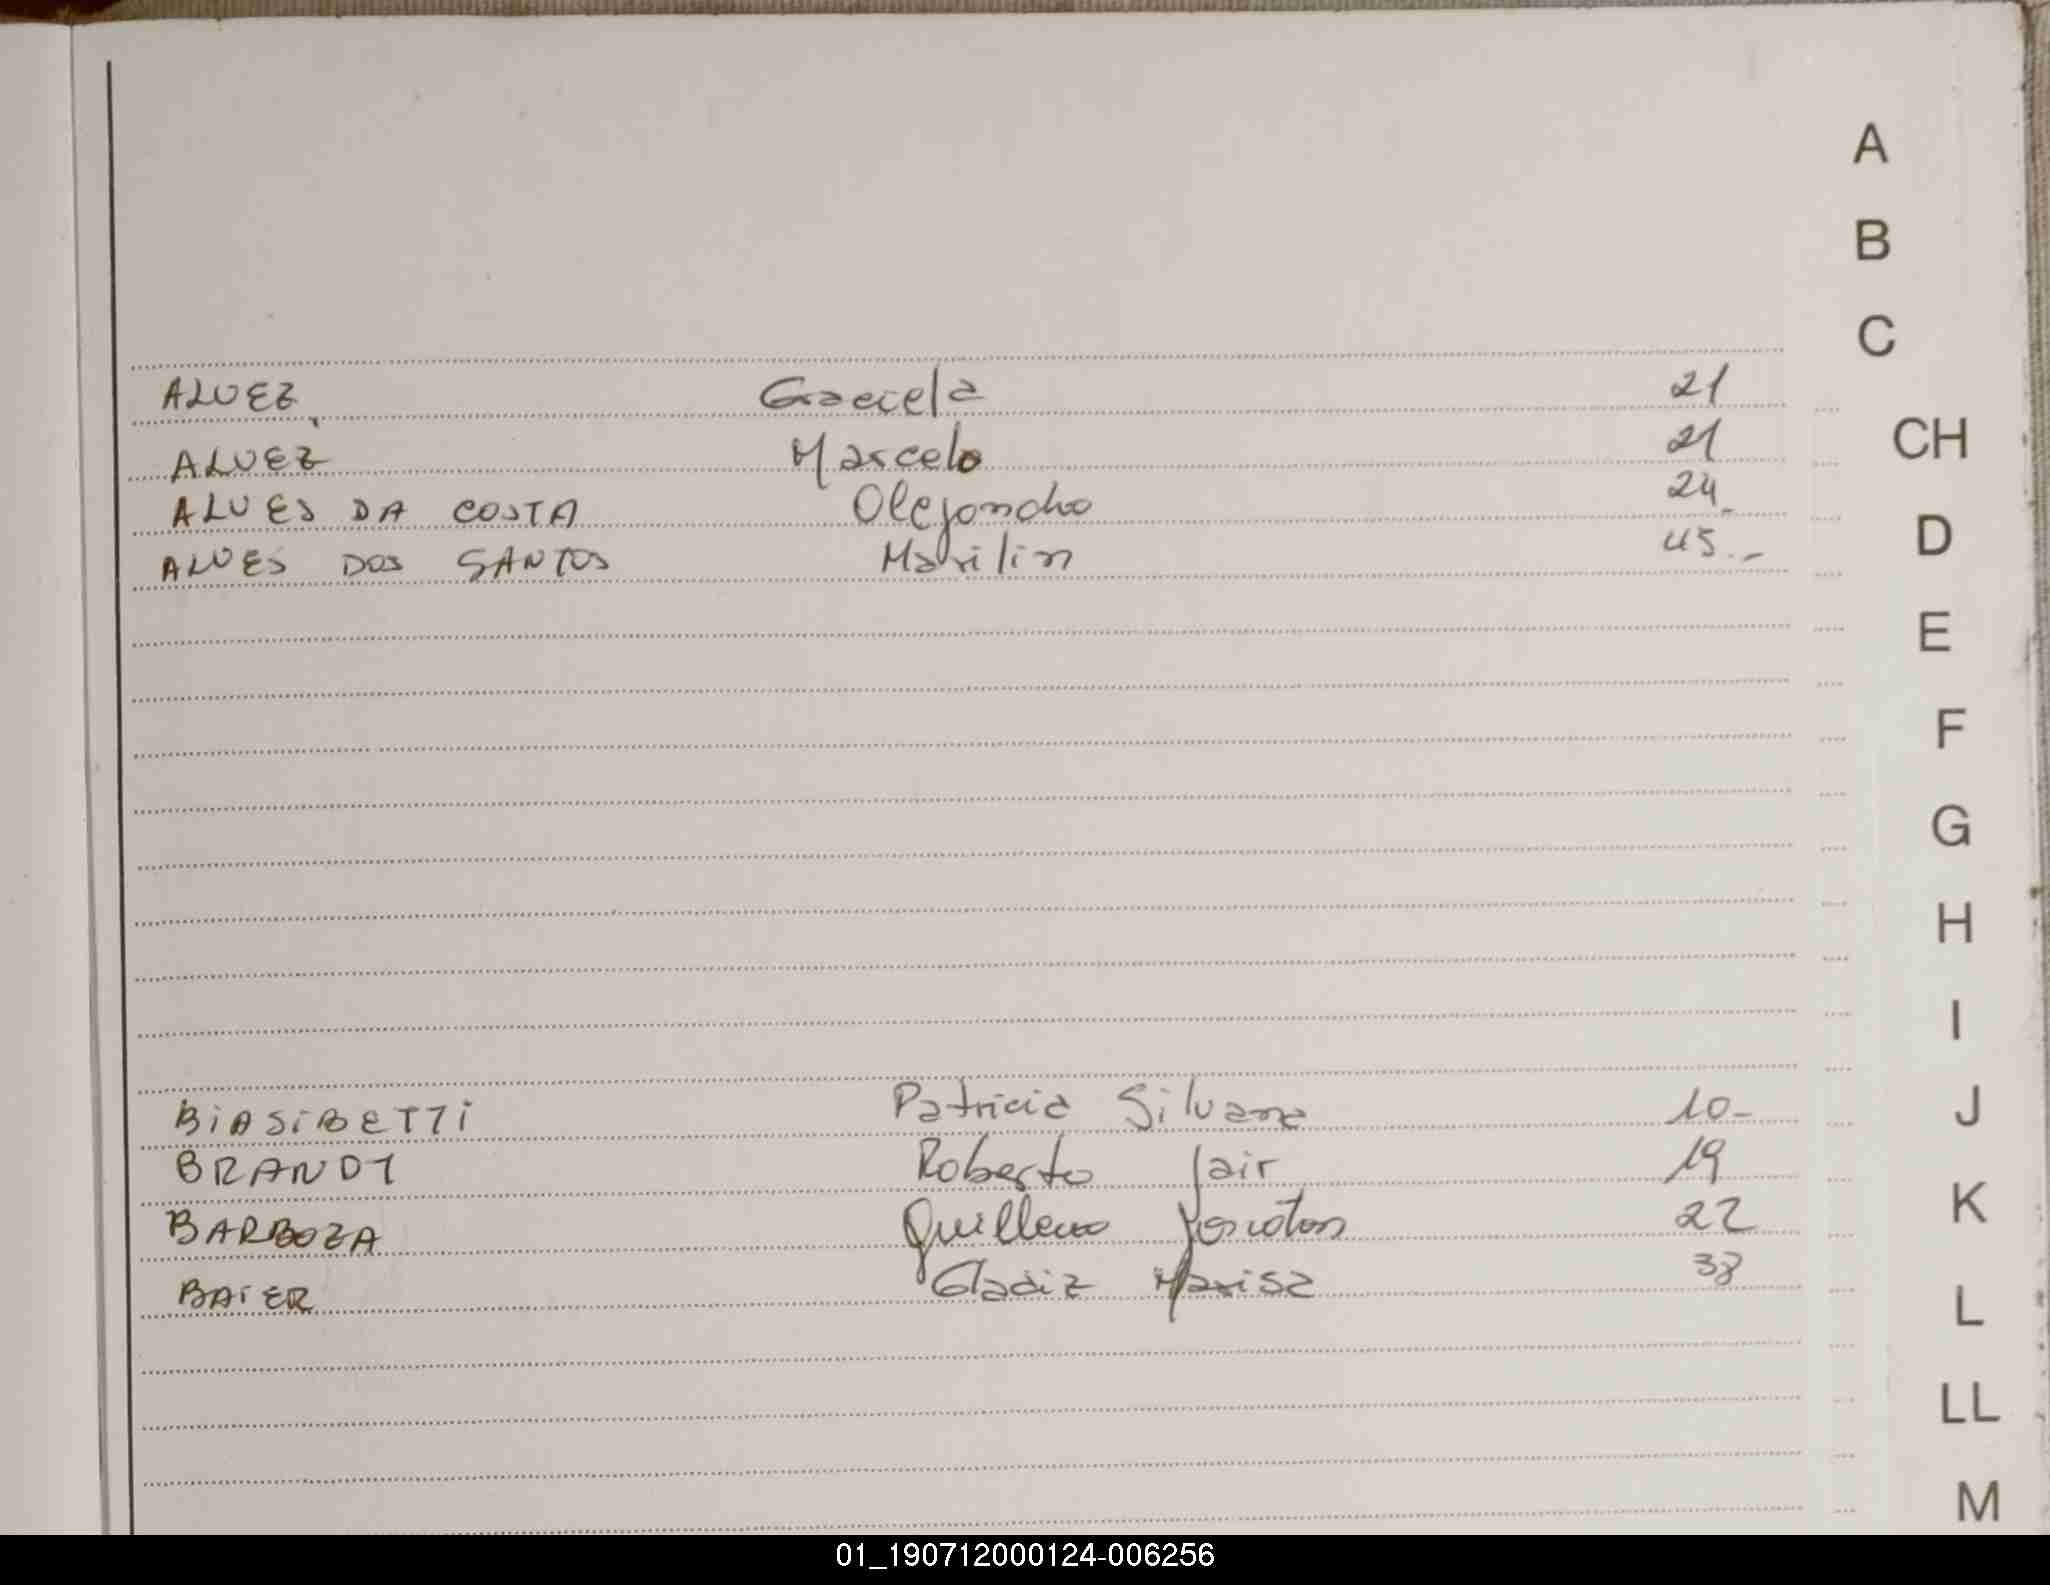 A
B
C
ALVEZ Graciela 21
CH
ALVEZ Marcelo 21
ALVES DA COSTA Olejondho 24
D
ALVES DOS SANTOS Marilin 45.-
E
F
G
H
I
BiASiBETTi Patricia Silvana 10-
J
BRANDT Roberto Jair 19
K
BARBOZA Guillermo Jonatan 22
BAiER Gladiz Marisa 38
L
LL
M
01_190712000124-006256